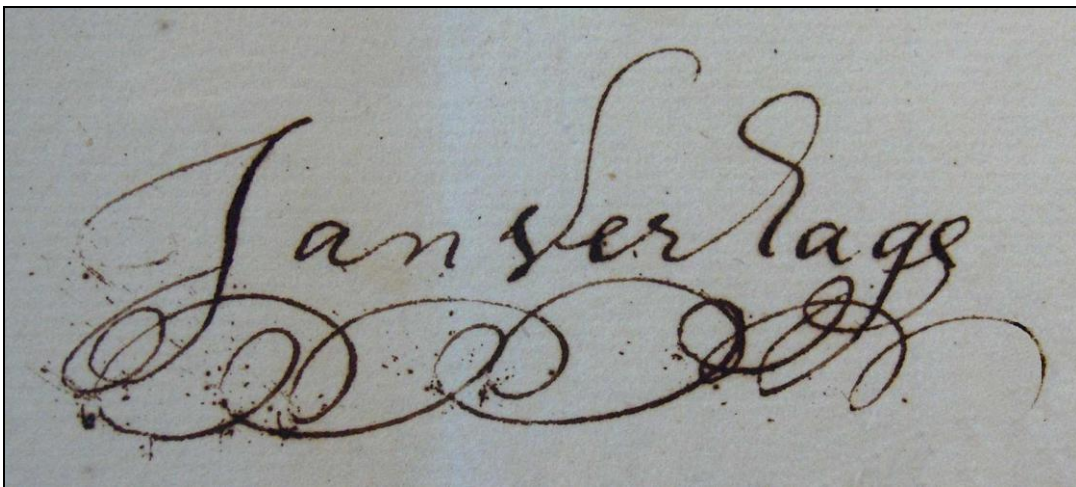 Jan Verhage